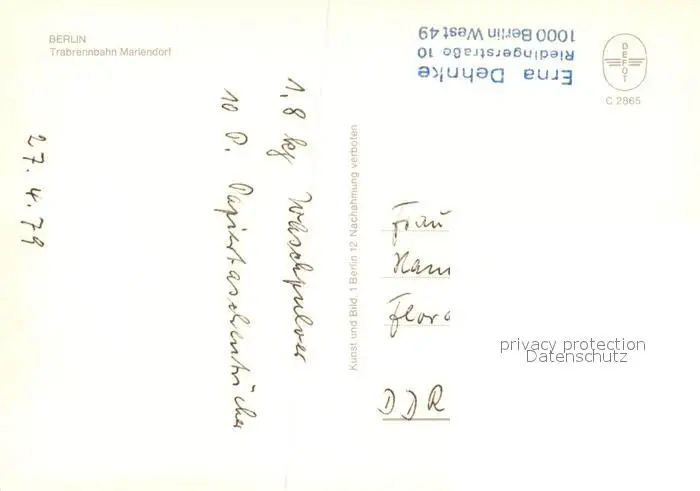 BERLIN
Trabrennbahn Mariendorf
Erna Dehnke
Riedingerstraße 10
1000 Berlin West 49
DEFOT
C 2865
27.4.79
1,8 kg Waschpulver
10 P. Papiertaschentücher
Kunst und Bild, 1 Berlin 12 Nachahmung verboten
Frau
Han
Flor
DDR
privacy protection
Datenschutz